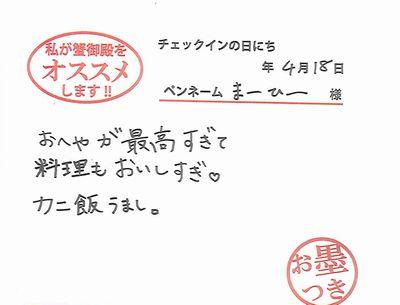 私が蟹御殿を
オススメ
します!!
チェックインの日にち
年 4月18日
ペンネーム まーひー 様
おへやが最高すぎて
料理もおいしすぎ♡
カニ飯うまし。
お墨
つき